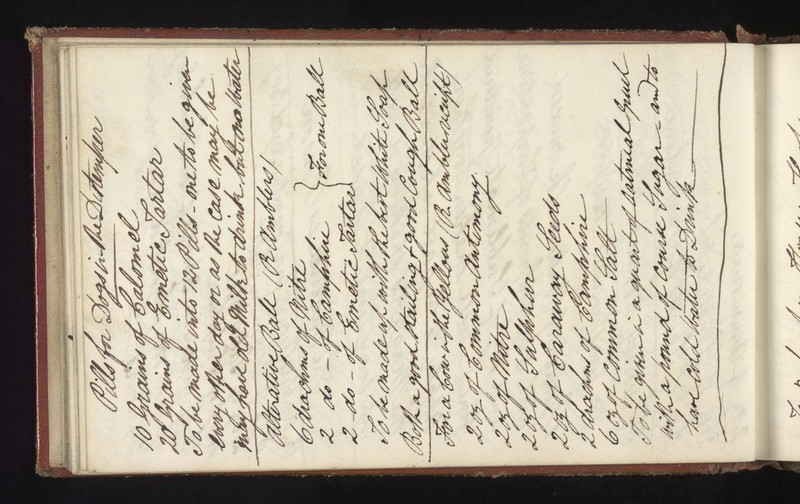 Pills for Dogs in the Distemper
10 Grains of Calomel
20 Grains of Emetic Tartar
To be made into 12 Pills - one to be given
every other day or as the case may be
may have old Milk to drink but no water
Alterative Ball (R. Amblers)
6 drachms of Nitre
2 do - of Camphire } For one Ball
2 - do - of Emetic Tartar
To be made up with the best White Soap
Both a good Staling & good Cough Ball
For a Cow in the Yellows (R. Ambler's receipt)
2 oz of Common Antimony
2 oz of Nitre
2 oz of Sulphur
2 oz of Caraway Seeds
2 drachms of Camphire
6 oz of Common Salt
To be given in a quart of oatmeal gruel
with a pound of coarse Sugar - and to
have cold water to Drink